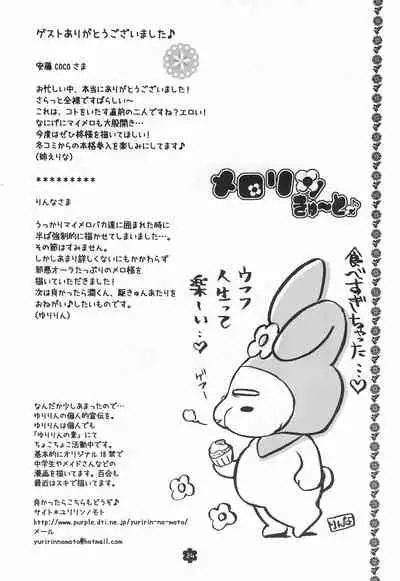 ゲストありがとうございました♪
安藤COCOさま
お忙しい中、本当にありがとうございます!
さらっと全裸ですばらしい~
これは、コトをいたす直前の二人ですね?エロい!
なにげにマイメロも大股開き…
今度はぜひ柊様を描いてほしい!
冬コミからの本格参入を楽しみにしてます♪
(姉えりな)
*********
りんなさま
うっかりマイメロバカ達に囲まれた時に
半ば強制的に描かせてしまいました…。
その節はすみません。
しかしあまり詳しくないにもかかわらず
邪悪オーラたっぷりのメロ様を
描いていただきました!
次は良かったら潤くん、駆きゅんあたりを
おねがい♪したいものです。
(ゆりりん)
なんだか少しあまったので…
ゆりりんの個人的宣伝を。
ゆりりんは個人でも
「ゆりりんの素」にて
ちょこちょこ活動中です。
基本的にオリジナル18禁で
中学生やメイドさんなどの
漫画を描いてます。百合も
最近はスキで描いてます。
良かったらこちらもどうぞ♪
サイト*ユリリンノモト
http://www.purple.dti.ne.jp/yuririn-no-moto/
メール
yuririnnomoto@hotmail.com
メロリン
きゅ~と♪
食べすぎちゃった…♡
ウフフ
人生って
楽しい…♡
ゲプー
りんな
34